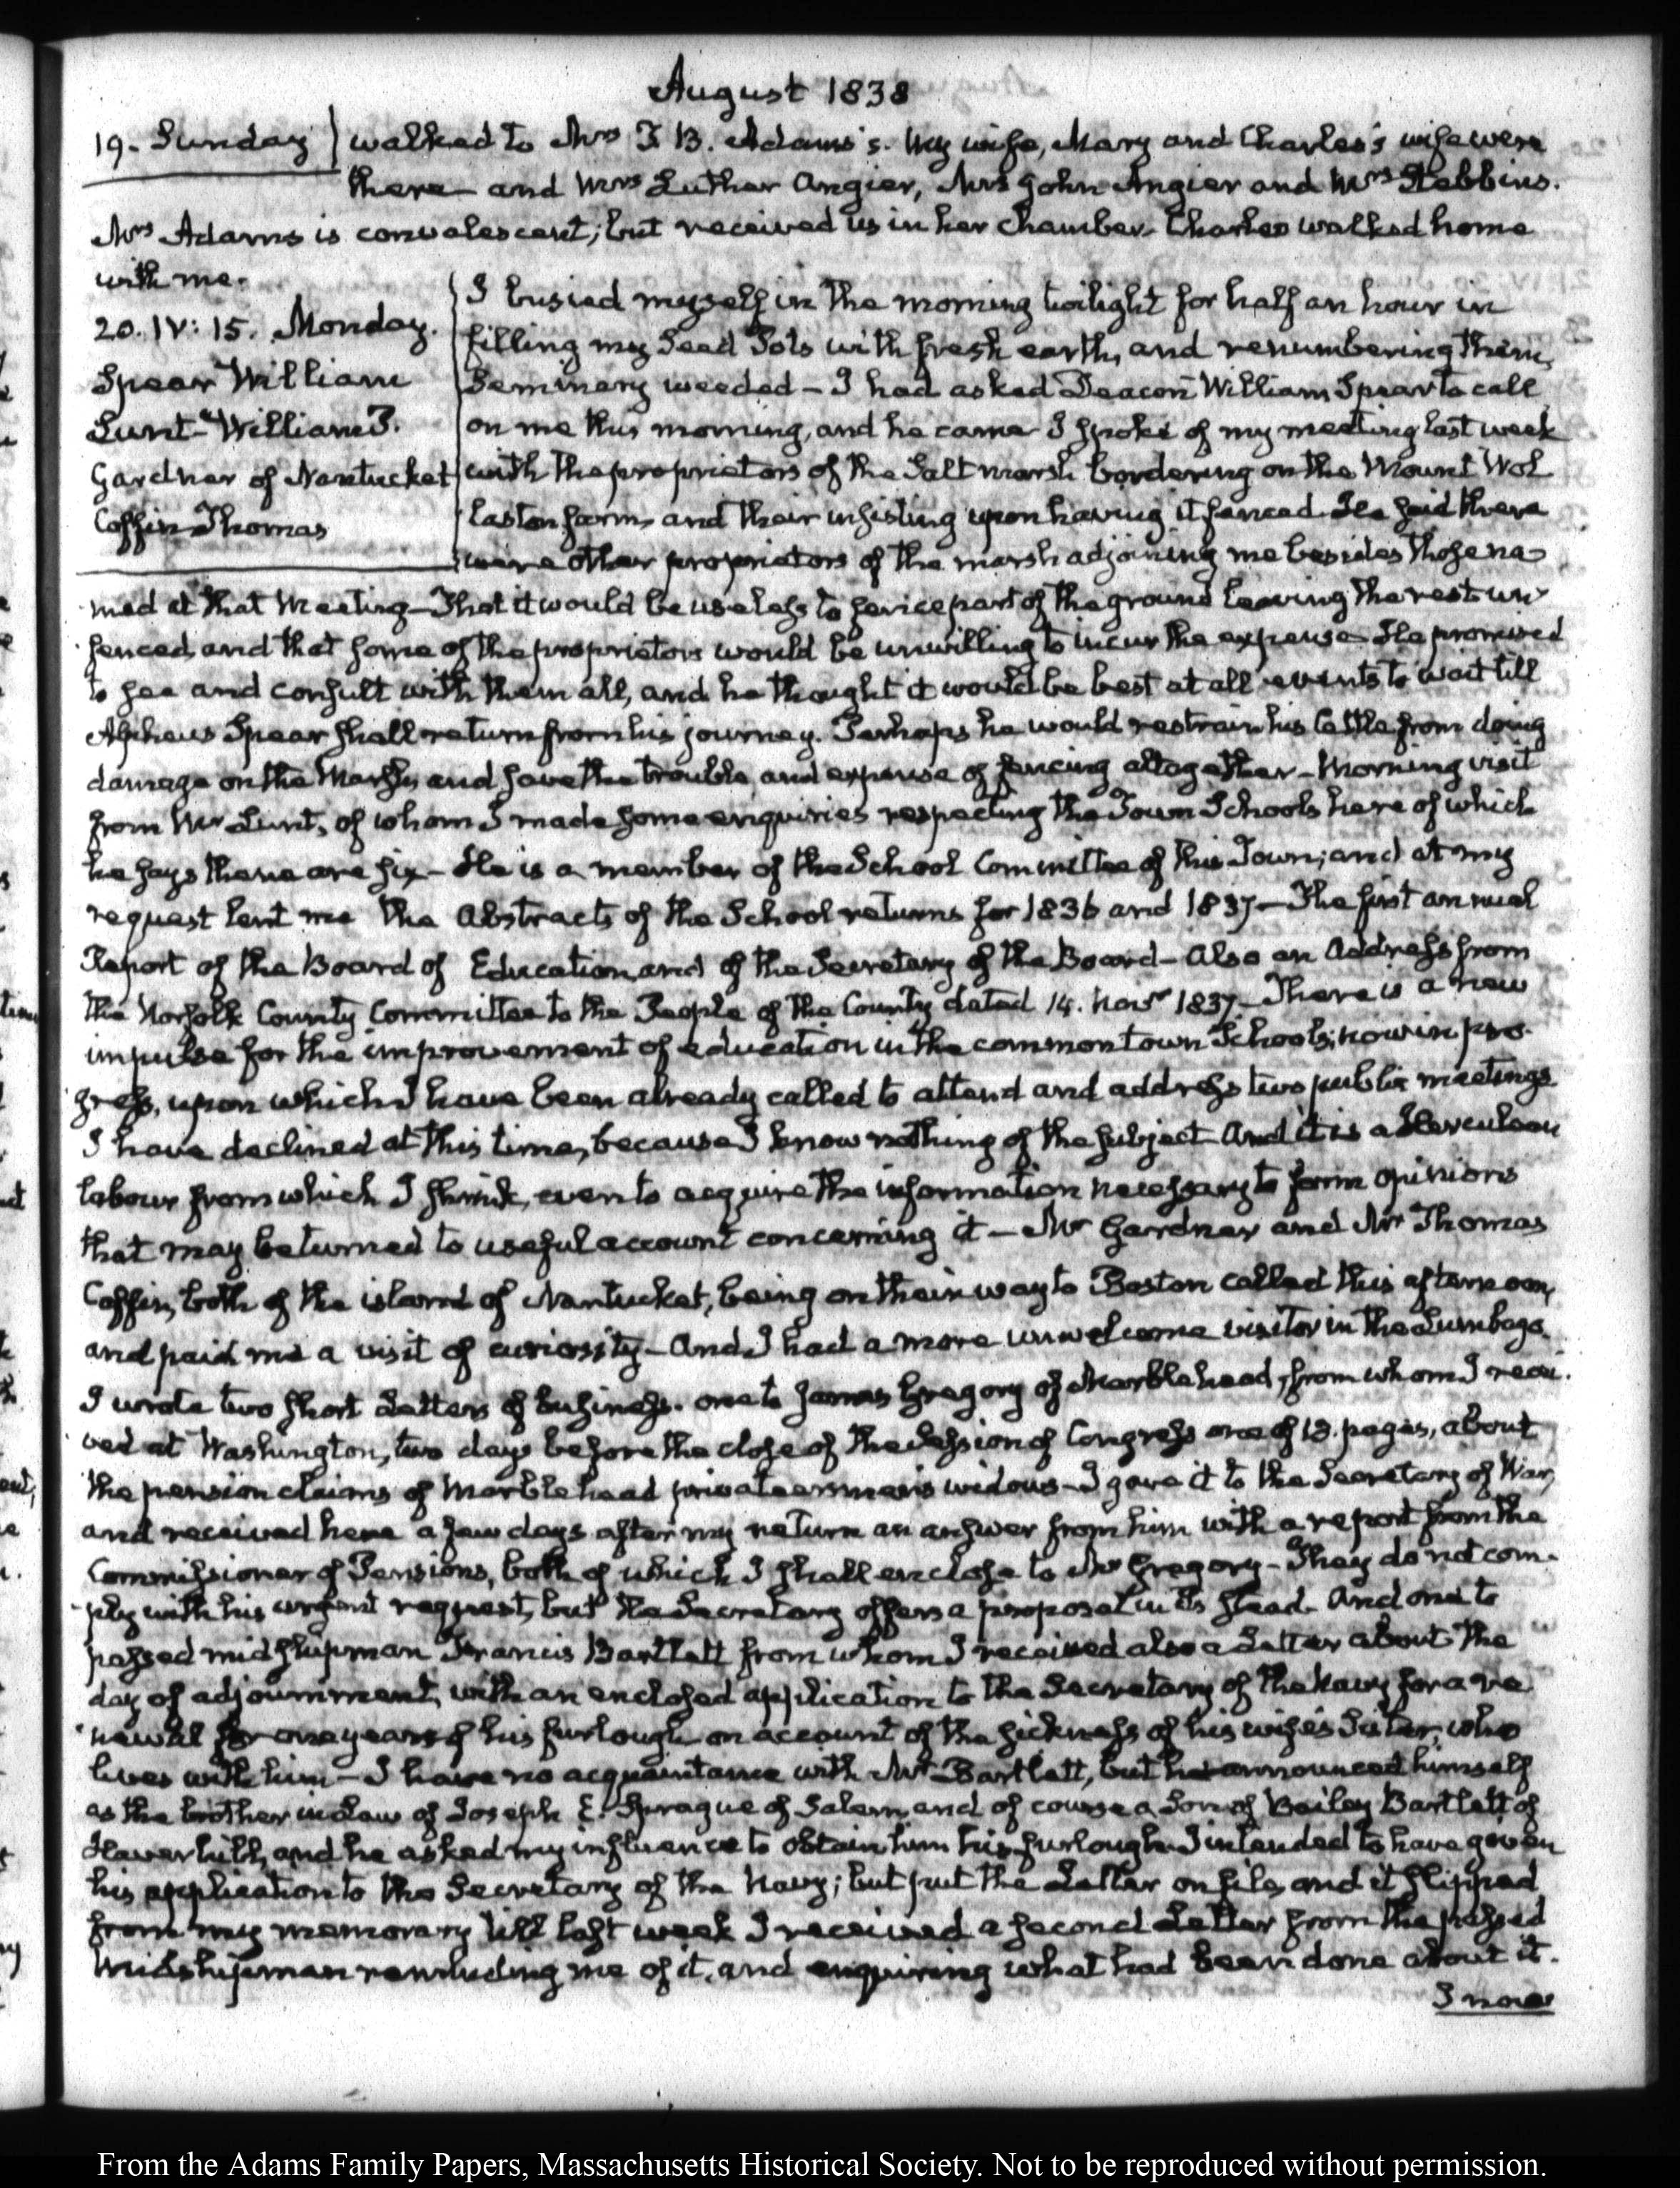 August 1838
19. Sunday
walked to Mrs T. B. Adams's. My wife, Mary and Charles's wife were
there and Mrs Luther Angier, Mrs John Angier and Mrs Stebbins.
Mrs Adams is convalescent; but received us in her chamber. Charles walked home
with me.
20. IV: 15. Monday.
Spear William
Lunt William P.
Gardner of Nantucket
Coffin Thomas
I busied myself in the morning twilight for half an hour in
filling my Seed Pots with fresh earth, and renumbering them,
Seminary weeded — I had asked Deacon William Spear to call
on me this morning, and he came I spoke of my meeting last week
with the proprietors of the Salt marsh bordering on the Mount Wol
laston farm, and their insisting upon having it fenced. He said there
were other proprietors of the marsh adjoining me besides those na
med at that Meeting — That it would be useless to fence part of the ground leaving the rest un
fenced, and that some of the proprietors would be unwilling to incur the expense. He promised
to see and consult with them all, and he thought it would be best at all events to wait till
Alpheus Spear shall return from his journey. Perhaps he would restrain his Cattle from doing
damage on the Marsh, and save the trouble, and expense of fencing altogether — Morning visit
from Mr Lunt, of whom I made some enquiries respecting the Town Schools here of which
he says there are six — He is a member of the School Committee of this Town; and at my
request lent me the Abstracts of the School returns for 1836 and 1837 — The first annual
Report of the Board of Education, and of the Secretary of the Board — Also an Address from
the Norfolk County Committee to the People of the County dated 14. Novr 1837 — There is a new
impulse for the improvement of education in the common town Schools, now in pro-
gress, upon which I have been already called to attend and address two public meetings
I have declined at this time, because I know nothing of the subject And it is a Herculean
labour from which I shrink, even to acquire the information necessary to form opinions
that may be turned to useful account concerning it — Mr Gardner and Mr Thomas
Coffin, both of the island of Nantucket, being on their way to Boston called this afternoon,
and paid me a visit of curiosity — And I had a more unwelcome visitor in the Lumbago.
I wrote two short Letters of business. one to James Gregory of Marblehead, from whom I recei-
ved at Washington, two days before the close of the Session of Congress one of 13. pages, about
the pension claims of Marblehead privateersmen's widows — I gave it to the Secretary of War,
and received here a few days after my return an answer from him with a report from the
Commissioner of Pensions, both of which I shall enclose to Mr Gregory — They do not com-
ply with his urgent request, but the Secretary offers a proposal in its stead. And one to
passed midshipman Francis Bartlett from whom I received also a Letter about the
day of adjournment, with an enclosed application to the Secretary of the Navy for a re
newal for one year of his furlough on account of the sickness of his wife's Sister, who
lives with him — I have no acquaintance with Mr Bartlett, but he announced himself
as the brother in Law of Joseph E. Sprague of Salem, and of course a Son of Bailey Bartlett of
Haverhill, and he asked my influence to obtain him his furlough. I intended to have given
his application to the Secretary of the Navy; but put the Letter on file, and it slipped
from my memory till last week I received a second Letter from the passed
Midshipman reminding me of it, and enquiring what had been done about it.
I now
From the Adams Family Papers, Massachusetts Historical Society. Not to be reproduced without permission.